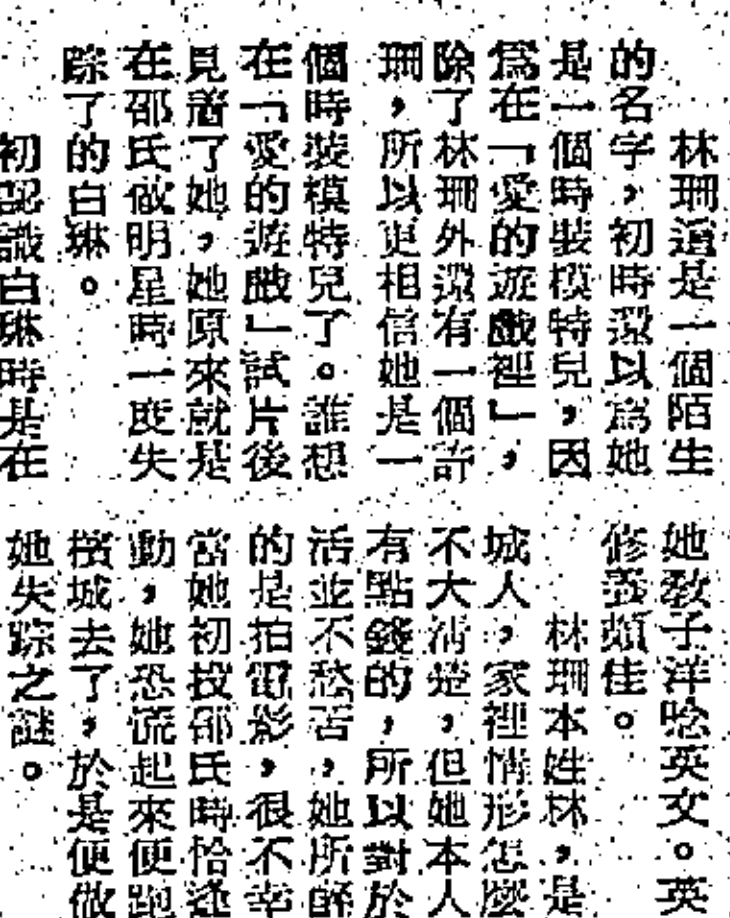 林珊這是一個陌生
的名字，初時還以爲她
是一個時裝模特兒，因
爲在「愛的遊戲裡」，
除了林珊外還有一個許
珊，所以更相信她是一
個時裝模特兒了。誰想
在「愛的遊戲」試片後
見着了她，她原來就是
在邵氏做明星時一度失
踪了的白琳。
初認識白琳時是在
她教子洋唸英文。英
修養頗佳。
林珊本姓林，是
城人，家裡情形怎麼
不大清楚，但她本人
有點錢的，所以對於
活並不愁苦，她所
的是拍電影，很不幸
當她初投邵氏時恰逢
動，她恐慌起來便跑
檳城去了，於是便做
她失踪之謎。